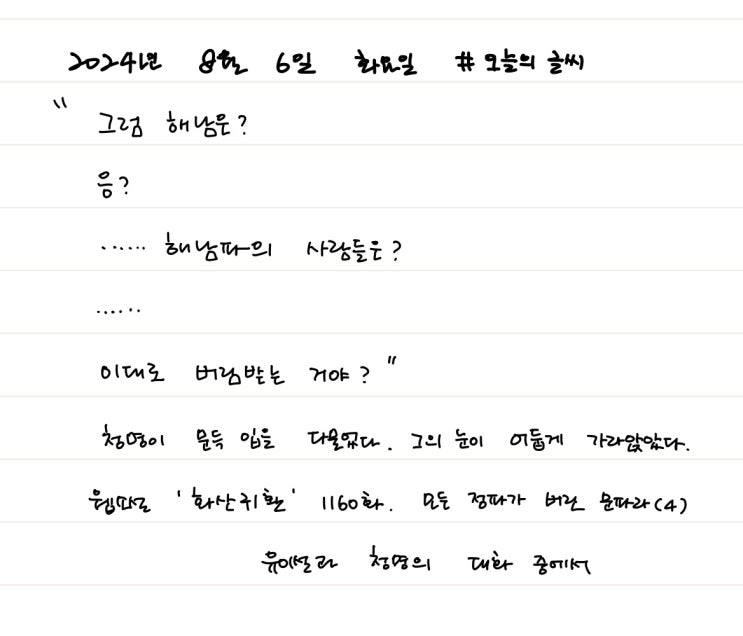 2024년 8월 6일 화요일 # 오늘의 글씨
" 그럼 해남은?
응?
...... 해남파의 사람들은?
......
이대로 버림받는 거야? "
청명이 문득 입을 다물었다. 그의 눈이 어둡게 가라앉았다.
웹소설 '화산귀환' 1160화. 모든 정파가 버린 문파라 (4)
유이설과 청명의 대화 중에서